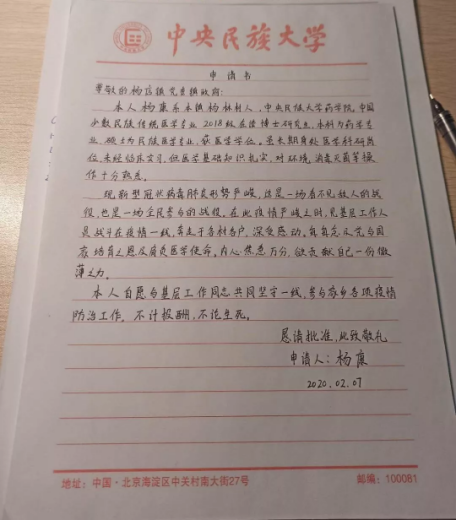 中央民族大学
申请书
尊敬的杨店镇党委镇政府:
本人杨康系本镇杨林村人,中央民族大学药学院,中国
少数民族传统医学专业2018级在读博士研究生,本科为药学专
业,硕士为民族医学专业,获医学学位。虽长期身处医学科研岗
位,未经临床实习,但医学基础知识扎实,对环境消毒灭菌等操
作十分熟悉。
现新型冠状病毒肺炎形势严峻,这是一场看不见敌人的战
役,也是一场全民参与的战役。在此疫情严峻之时,见基层工作人
员战斗在疫情一线,奔走于各村各户,深受感动。自身受党与国
家培育之恩及肩负医学使命,内心焦急万分,欲贡献自己一份微
薄之力。
本人自愿与基层工作同志共同坚守一线,参与家乡各项疫情
防治工作。不计报酬,不论生死。
恳请批准,此致敬礼
申请人:杨康
2020.02.07
地址:中国·北京海淀区中关村南大街27号 邮编:100081